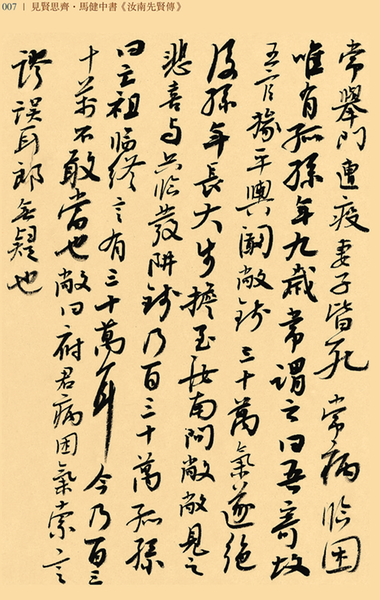 007 | 見賢思齊・馬健中書《汝南先賢傳》
常舉門連疫妻子皆死常病臨困
唯有孤孫年九歲常謂之曰吾寄故
五官掾平輿闞敞錢三十萬氣遂絕
後孫年長大步擔至汝南問敞敞見之
悲喜與共臨發阱錢乃百三十萬孤孫
曰亡祖臨終言有三十萬耳今乃百三
十萬不敢當也敞曰府君病困氣索言
謬誤耳郎無疑也